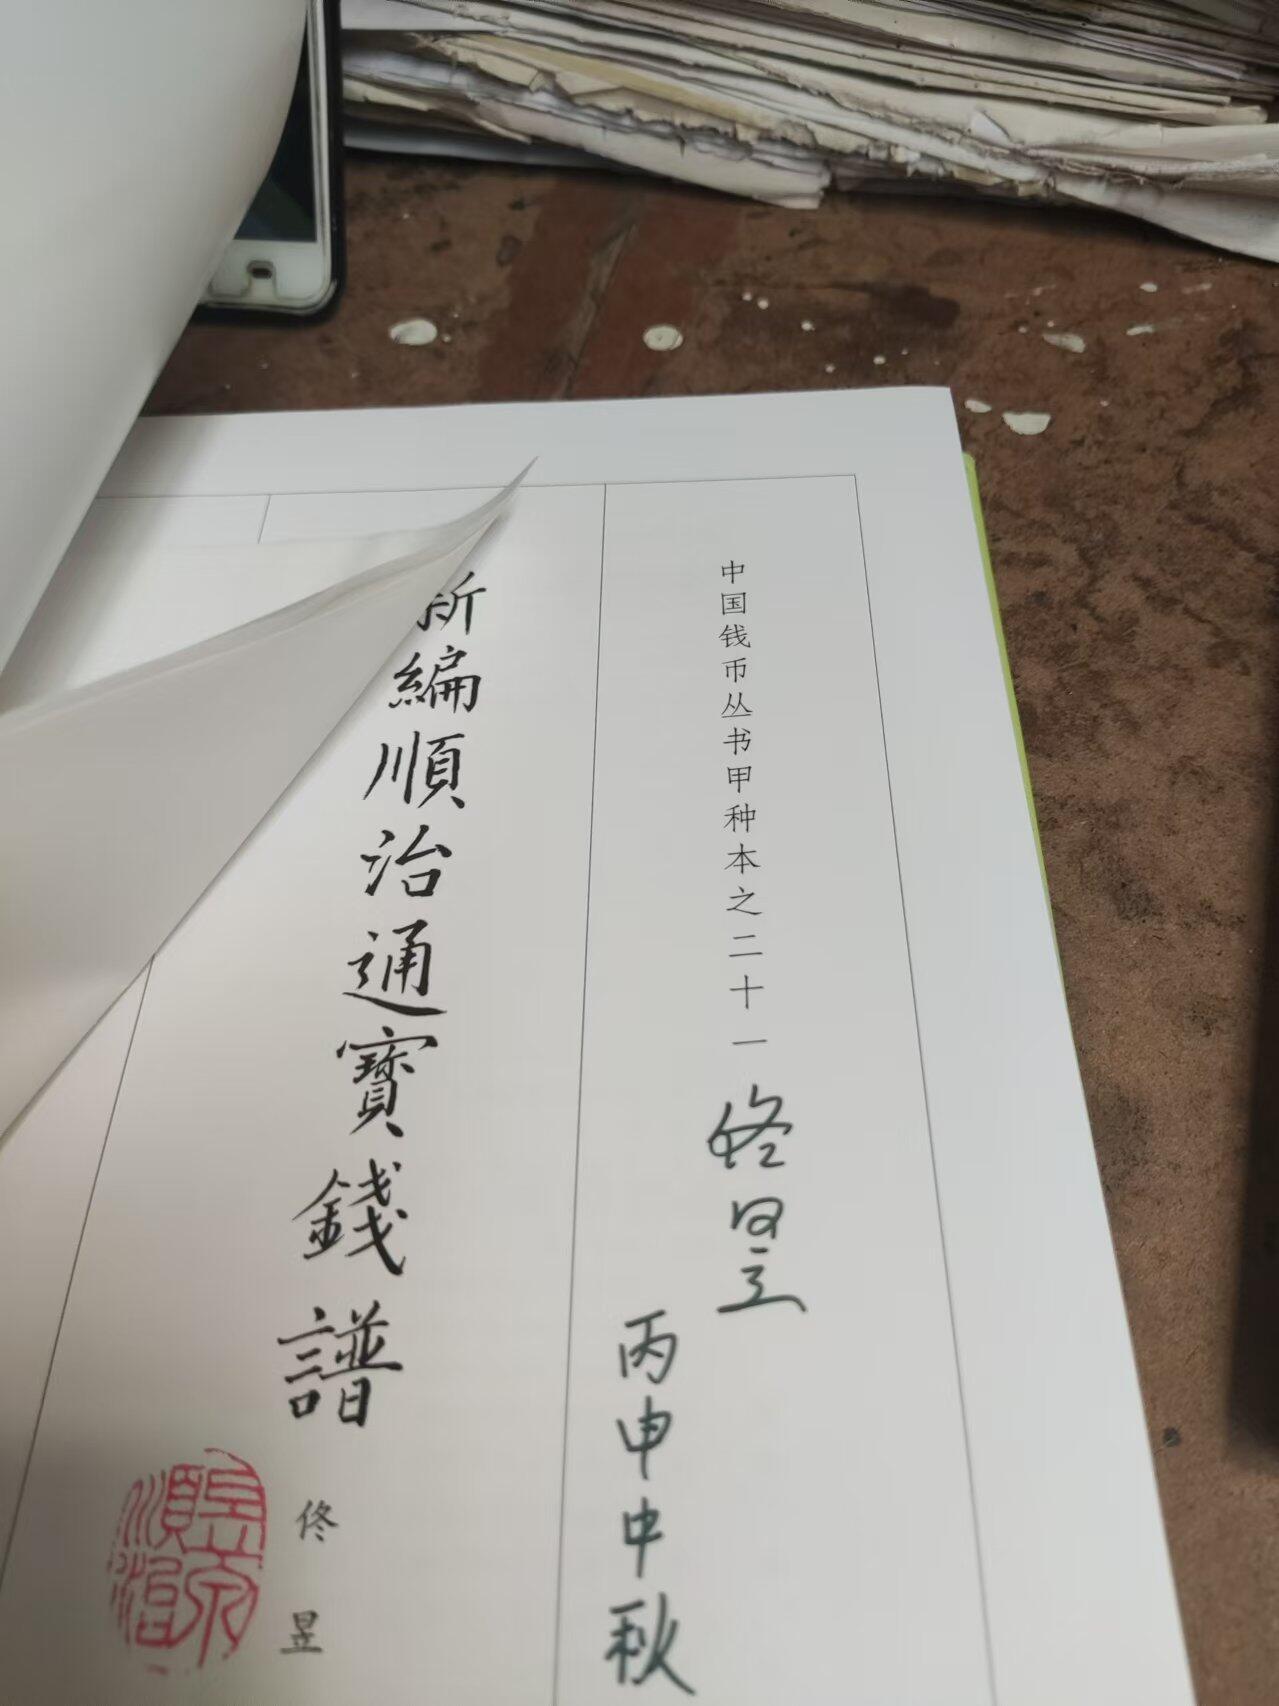 中国钱币丛书甲种本之二十一
佟昱
丙申中秋
新編順治通寶錢譜
佟昱